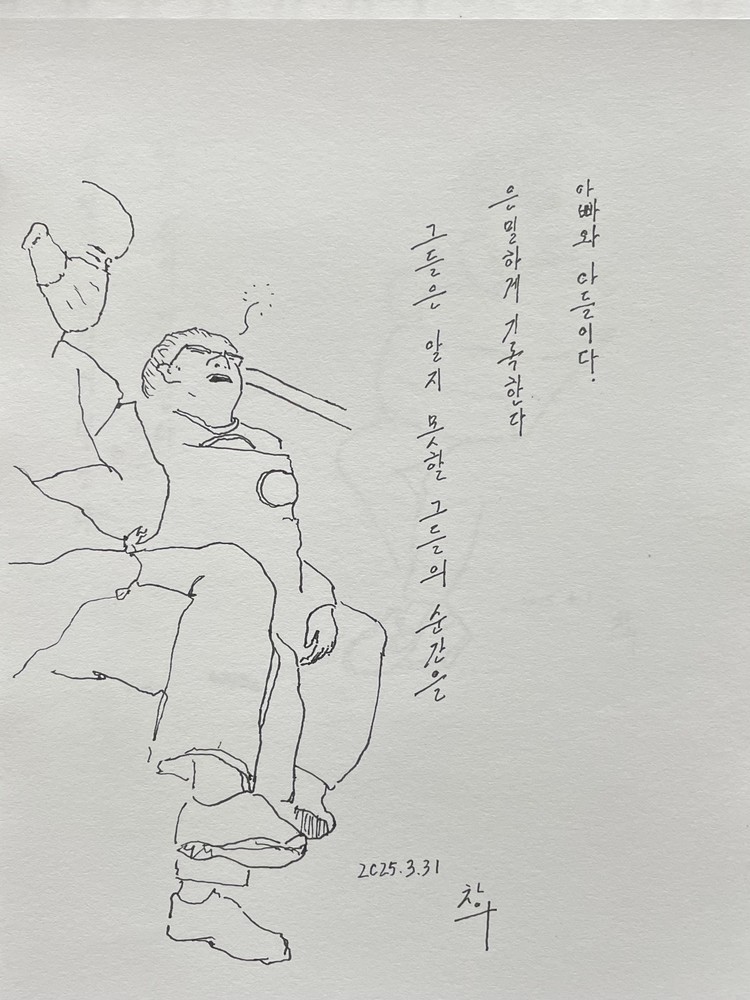 그들은 알지 못할 그들의 순간을
은밀하게 기록한다
아빠와 아들이다.
2025.3.31